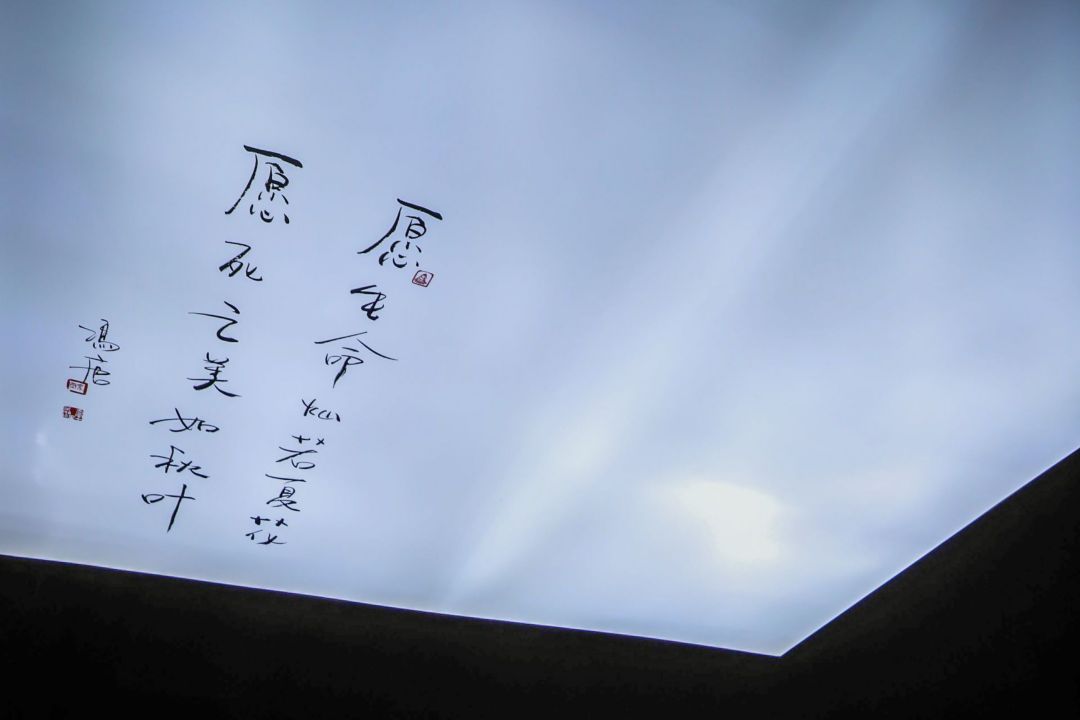 愿生命灿若夏花
愿死之美如秋叶
馮唐